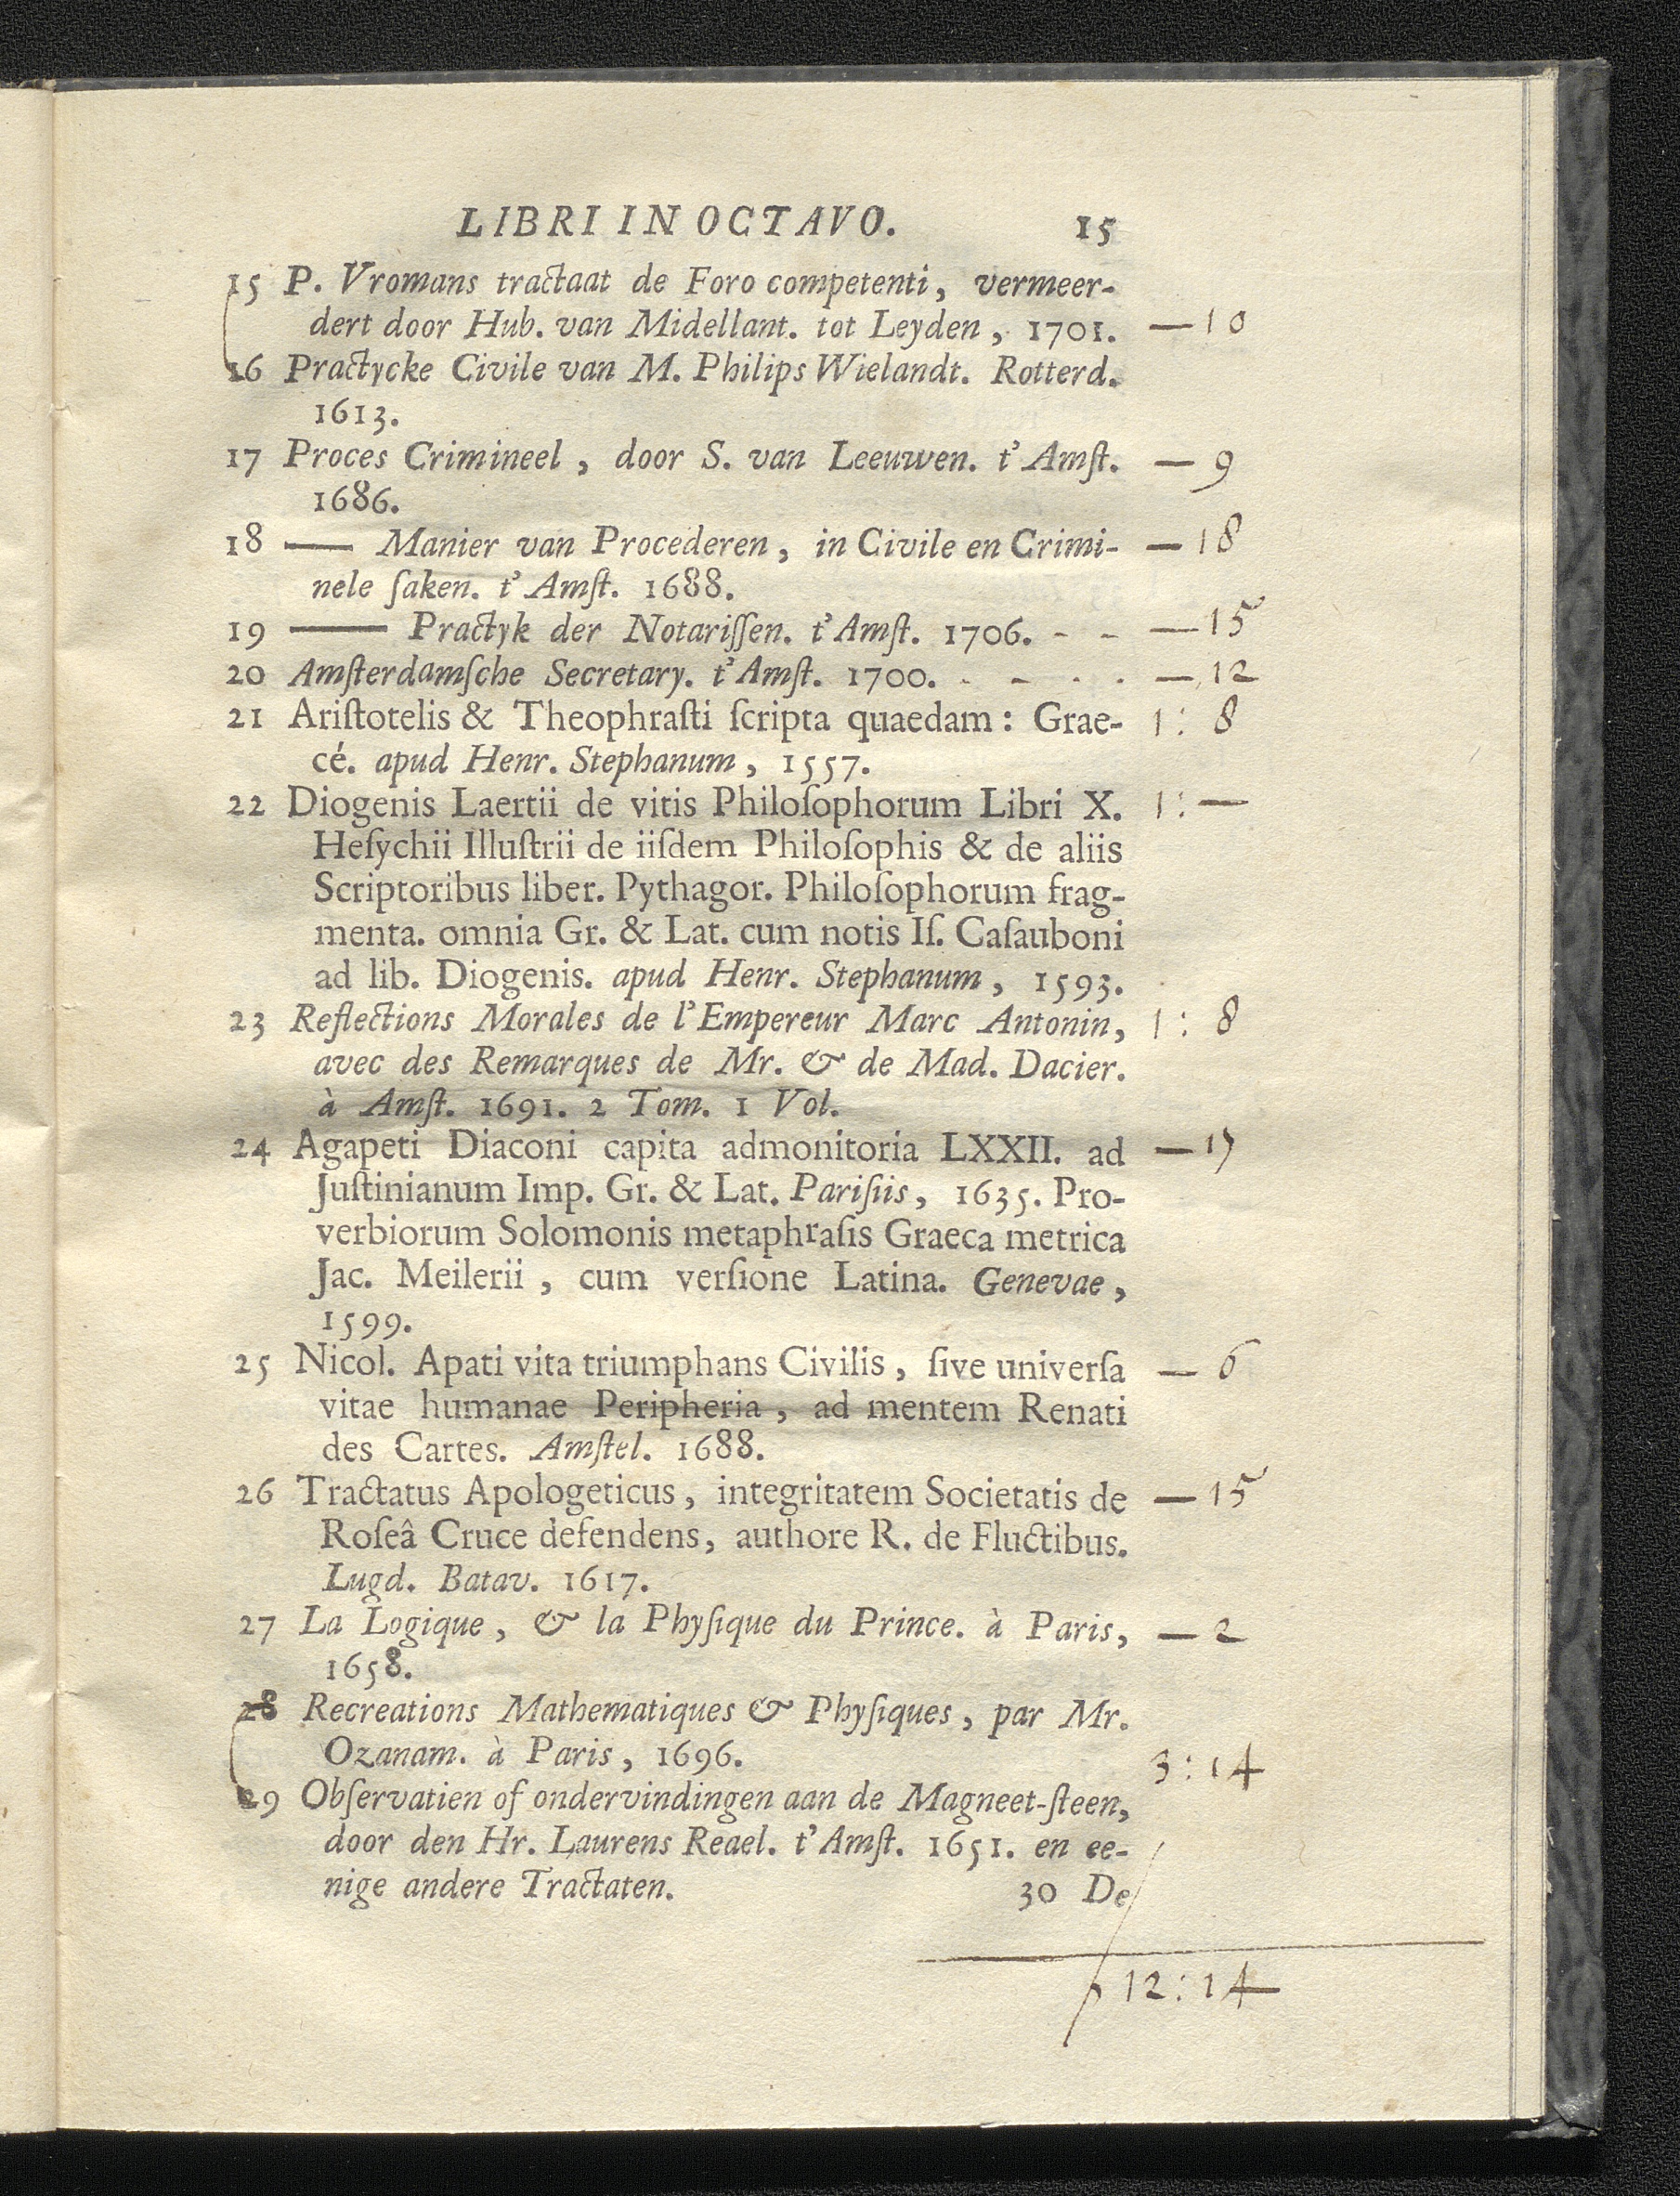 LIBRI IN OCTAVO. 15
15 P. Vromans tractaat de Foro competenti, vermeer-
dert door Hub. van Midellant. tot Leyden, 1701. — 10
16 Practycke Civile van M. Philips Wielandt. Rotterd.
1613.
17 Proces Crimineel, door S. van Leeuwen. t' Amſt. — 9
1686.
18 —— Manier van Procederen, in Civile en Crimi- — 18
nele ſaken. t' Amſt. 1688.
19 —— Practyk der Notariſſen. t' Amſt. 1706. - - — 15
20 Amſterdamſche Secretary. t' Amſt. 1700. - - - - — 12
21 Ariſtotelis & Theophraſti ſcripta quaedam: Grae- 1 : 8
cé. apud Henr. Stephanum, 1557.
22 Diogenis Laertii de vitis Philoſophorum Libri X. 1 : —
Heſychii Illuſtrii de iiſdem Philoſophis & de aliis
Scriptoribus liber. Pythagor. Philoſophorum frag-
menta. omnia Gr. & Lat. cum notis Iſ. Caſauboni
ad lib. Diogenis. apud Henr. Stephanum, 1593.
23 Reflections Morales de l'Empereur Marc Antonin, 1 : 8
avec des Remarques de Mr. & de Mad. Dacier.
à Amſt. 1691. 2 Tom. 1 Vol.
24 Agapeti Diaconi capita admonitoria LXXII. ad —
Juſtinianum Imp. Gr. & Lat. Pariſiis, 1635. Pro-
verbiorum Solomonis metaphraſis Graeca metrica
Jac. Meilerii, cum verſione Latina. Genevae,
1599.
25 Nicol. Apati vita triumphans Civilis, ſive univerſa — 6
vitae humanae Peripheria, ad mentem Renati
des Cartes. Amſtel. 1688.
26 Tractatus Apologeticus, integritatem Societatis de — 15
Roſeâ Cruce defendens, authore R. de Fluctibus.
Lugd. Batav. 1617.
27 La Logique, & la Phyſique du Prince. à Paris, — 2
1658.
28 Recreations Mathematiques & Phyſiques, par Mr.
Ozanam. à Paris, 1696. 3 : 14
29 Obſervatien of ondervindingen aan de Magneet-ſteen,
door den Hr. Laurens Reael. t' Amſt. 1651. en ee-
nige andere Tractaten. 30 De
12 : 14